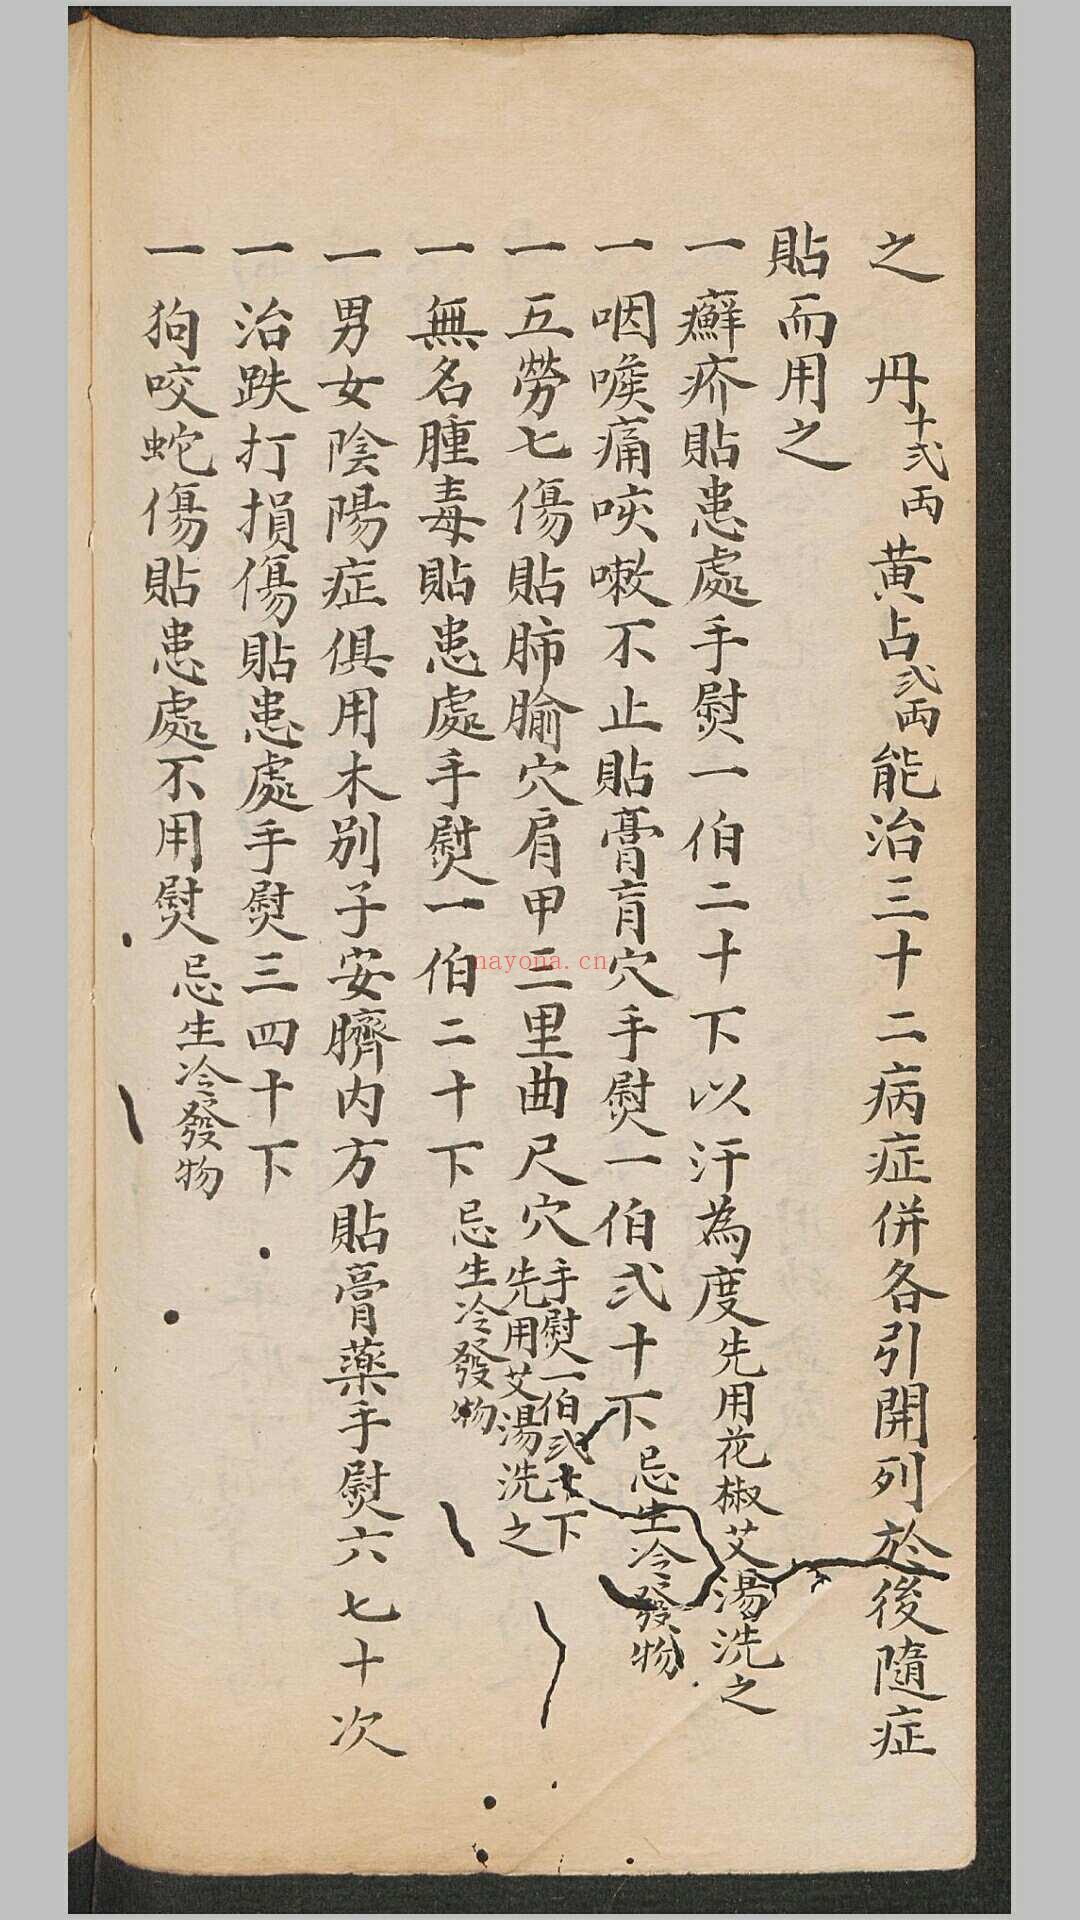 之　丹十弍両　黄占弍両能治三十二病症併各引開列於後隨症
貼而用之
一癬疥貼患處手熨一伯二十下以汗為度先用花椒艾湯洗之
一咽喉痛咳嗽不止貼膏肓穴手熨一伯弍十下忌生冷發物
一五勞七傷貼肺腧穴肩甲三里曲尺穴手熨一伯弍十下先用艾湯洗之
一無名腫毒貼患處手熨一伯二十下忌生冷發物
一男女陰陽症俱用木别子安臍内方貼膏藥手熨六七十次
一治跌打損傷貼患處手熨三四十下
一狗咬蛇傷貼患處不用熨忌生冷發物
nayona.cn